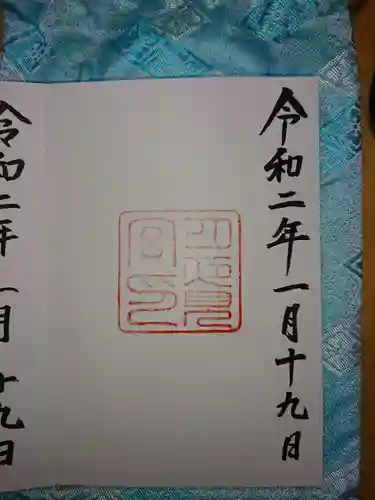 令和二年一月十九日
令和二年一月十九日